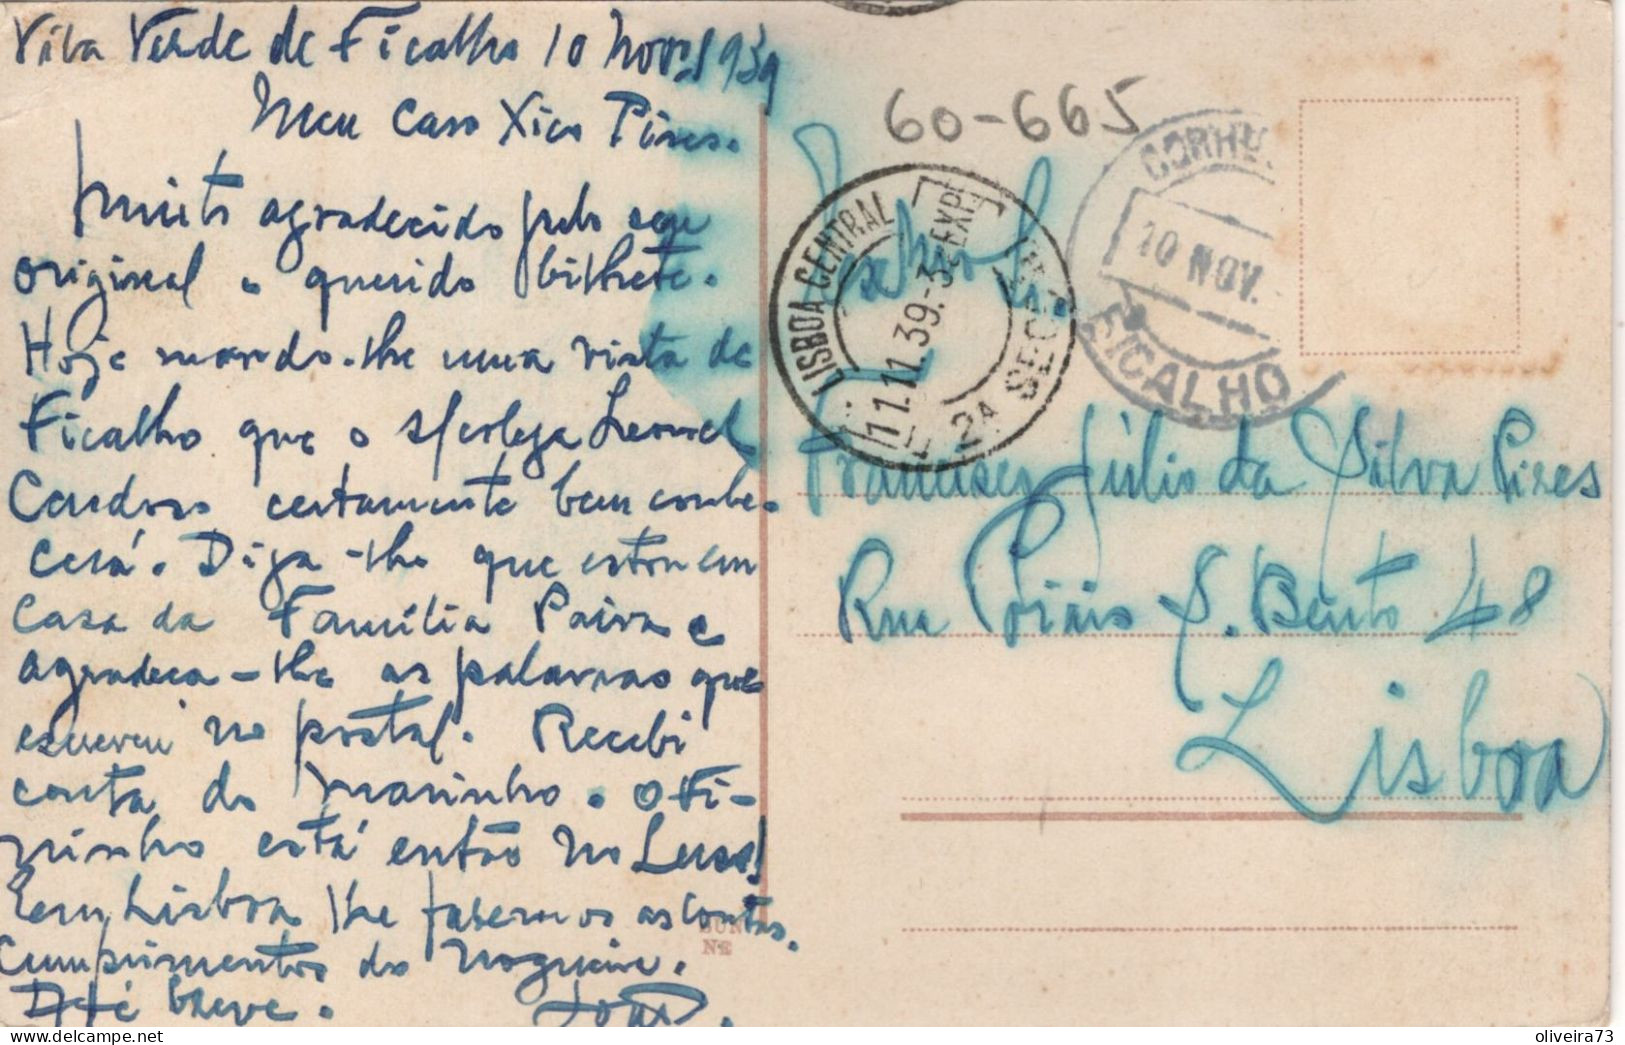 Vila Verde de Ficalho 10 Nov. 1939
Meu Caro Xico Pires.
Muito agradecido pelo seu
original e querido bilhete.
Hoje mando-lhe uma vista de
Ficalho que o Leonel
Cardoso certamente bem conhe-
cerá. Diga-lhe que estou em
casa da Família Paiva e
agradeça-lhe as palavras que
escreveu no postal. Recebi
carta do Marinho. O Fi-
ninho está então no Luso!
Em Lisboa lhe faremos as contas.
Cumprimentos do Nogueira.
Até breve.
60-665
Postal
LISBOA CENTRAL
11.11.39.-3
EXP
2A SECÇ
CORREI
10 NOV.
FICALHO
Francisco Júlio da Silva Pires
Rua Poiais S. Bento 48
Lisboa
NE
oliveira73